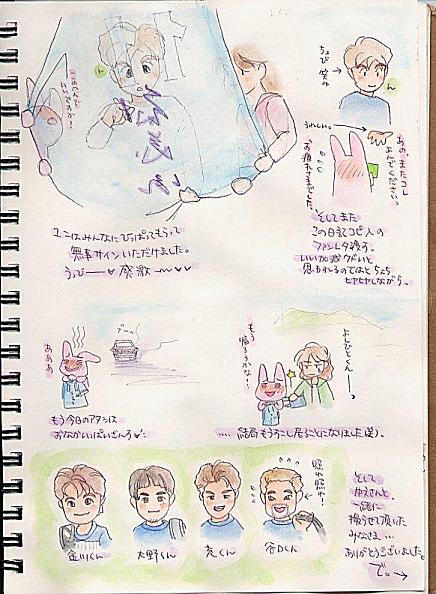 このへんで
いいですか?
ちょび笑み
ん
うれしい。
あの、またコレ
よんでくださいっ
お疲れさまでした。
ユニはみんなにひっぱってもらって
無事サインいただけました。
うっひーー♡感激〜〜♡♡
そしてまた
この日記コピ入の
ファンレタ渡す。
いい加減クドいと
思われるのではとちょち
ヒヤヒヤしながら。
あああ
ブーン
もう今日のアタシは
おなかいっぱいさんっ♡
もう
帰ろうかな!
よしひとくんーっ
....結局もうすこし居ることになりました(笑)。
照れ照れ!
金川くん
大野くん
亮くん
谷口くん
そして
一緒に
撮らせて頂いた
みなさま…
ありがとうございました。
で。→